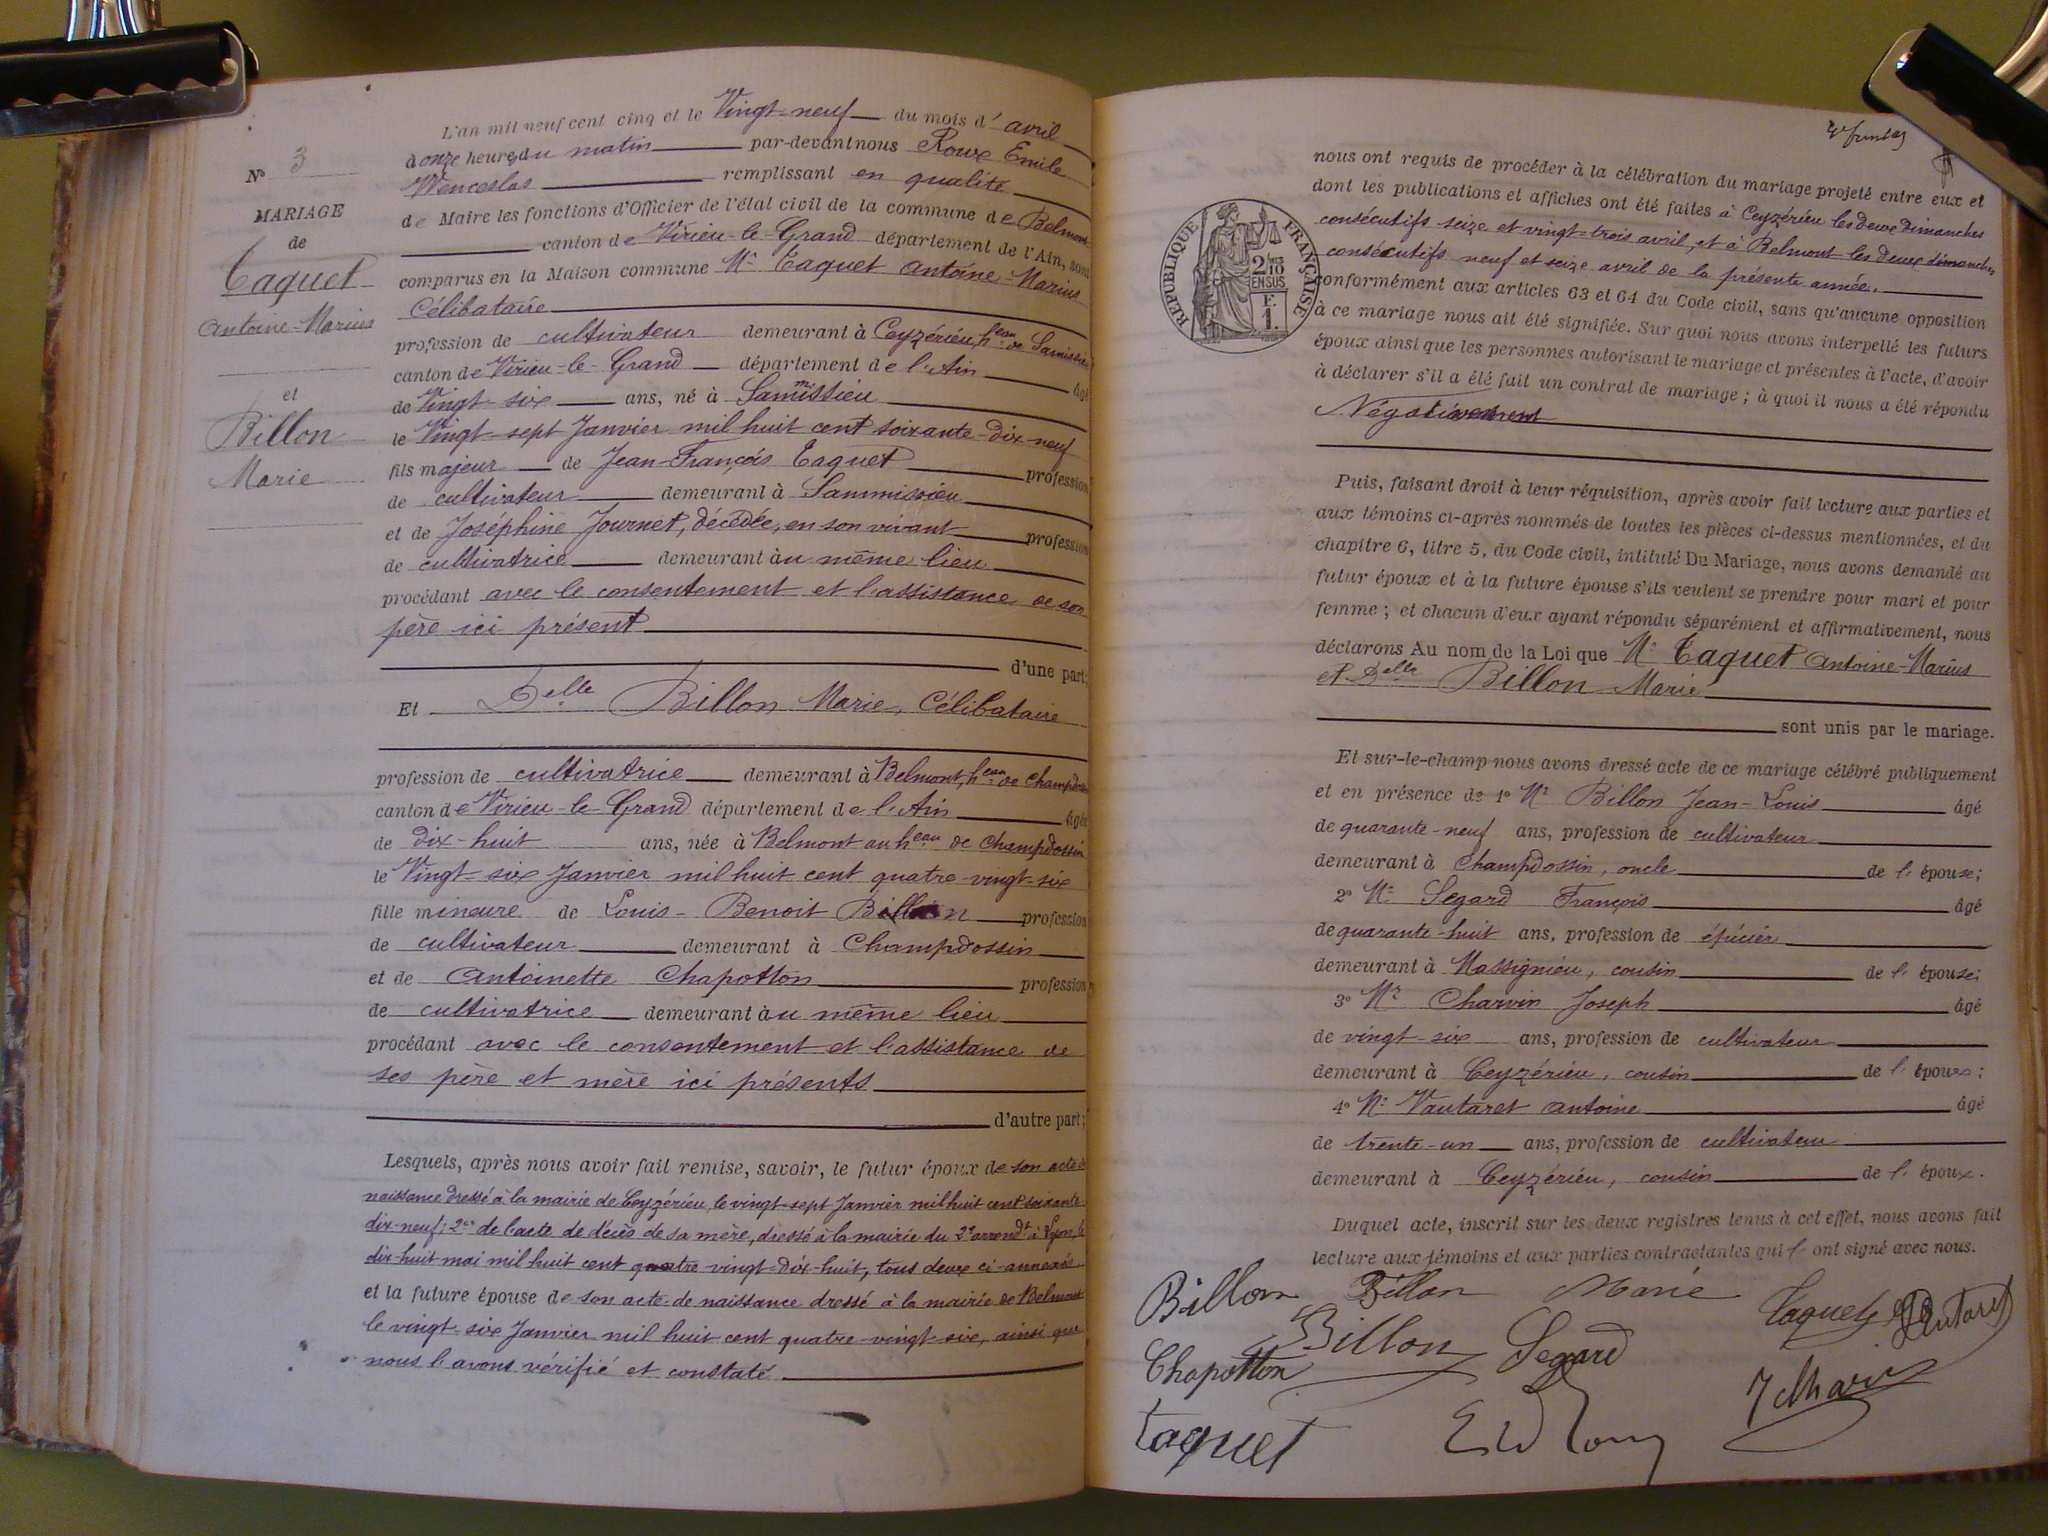 L'an mil neuf cent cinq et le Vingt-neuf du mois d'avril
à onze heures du matin par-devant nous Roux Emile
Wenceslas remplissant en qualité
de Maire les fonctions d'Officier de l'état civil de la commune de Belmont
canton de Virieu-le-Grand département de l'Ain, sont
comparus en la Maison commune Mr Taquet Antoine-Marius
Célibataire
profession de cultivateur demeurant à Ceyzérieu, heau de Samissieu
canton de Virieu-le-Grand département de l'Ain âgé
de Vingt-six ans, né à Samissieu
le Vingt-sept Janvier mil huit cent soixante-dix-neuf
fils majeur de Jean-François Taquet profession
de cultivateur demeurant à Sammissieu
et de Joséphine Journet, décédée, en son vivant profession
de cultivatrice demeurant au même lieu
procédant avec le consentement et l'assistance de son
père ici présent
d'une part;
Et Delle Billon Marie, Célibataire
profession de cultivatrice demeurant à Belmont, heau de Champdossin
canton de Virieu-le-Grand département de l'Ain âgée
de dix-huit ans, née à Belmont au heau de Champdossin
le Vingt-six Janvier mil huit cent quatre-vingt-six
fille mineure de Louis-Benoit Billon profession
de cultivateur demeurant à Champdossin
et de Antoinette Chapotton profession
de cultivatrice demeurant au même lieu
procédant avec le consentement et l'assistance de
ses père et mère ici présents
d'autre part;
Lesquels, après nous avoir fait remise, savoir, le futur époux de son acte de
naissance dressé à la mairie de Ceyzérieu, le vingt-sept Janvier mil huit cent soixante-
dix-neuf; 2° de l'acte de décès de sa mère, dressé à la mairie du 2e arrondt à Lyon, le
dix-huit mai mil huit cent quatre-vingt-dix-huit, tous deux ci-annexés
et la future épouse de son acte de naissance dressé à la mairie de Belmont
le vingt-six Janvier mil huit cent quatre-vingt-six, ainsi que
nous l'avons vérifié et constaté
No 3
MARIAGE
de
Taquet
Antoine-Marius
et
Billon
Marie
nous ont requis de procéder à la célébration du mariage projeté entre eux et
dont les publications et affiches ont été faites à Ceyzérieu les deux Dimanches
consécutifs seize et vingt-trois avril, et à Belmont les deux dimanches
consécutifs neuf et seize avril de la présente année.
conformément aux articles 63 et 64 du Code civil, sans qu'aucune opposition
à ce mariage nous ait été signifiée. Sur quoi nous avons interpellé les futurs
époux ainsi que les personnes autorisant le mariage et présentes à l'acte, d'avoir
à déclarer s'il a été fait un contrat de mariage; à quoi il nous a été répondu
Négativement
RÉPUBLIQUE FRANÇAISE
2/10
EN SUS
F.
1.
Puis, faisant droit à leur réquisition, après avoir fait lecture aux parties et
aux témoins ci-après nommés de toutes les pièces ci-dessus mentionnées, et du
chapitre 6, titre 5, du Code civil, intitulé Du Mariage, nous avons demandé au
futur époux et à la future épouse s'ils veulent se prendre pour mari et pour
femme; et chacun d'eux ayant répondu séparément et affirmativement, nous
déclarons Au nom de la Loi que Mr Taquet Antoine-Marius
et Delle Billon Marie
sont unis par le mariage.
Et sur-le-champ nous avons dressé acte de ce mariage célébré publiquement
et en présence de 1° Mr Billon Jean-Louis âgé
de quarante-neuf ans, profession de cultivateur
demeurant à Champdossin, oncle de l'épouse;
2° Mr Segard François âgé
de quarante-huit ans, profession de épicier
demeurant à Massignieu, cousin de l'épouse;
3° Mr Charvin Joseph âgé
de vingt-six ans, profession de cultivateur
demeurant à Ceyzérieu, cousin de l'époux;
4° Mr Vautaret Antoine âgé
de trente-un ans, profession de cultivateur
demeurant à Ceyzérieu, cousin de l'époux.
Duquel acte, inscrit sur les deux registres tenus à cet effet, nous avons fait
lecture aux témoins et aux parties contractantes qui l'ont signé avec nous.
Billon Billon Marie Taquet Vautaret
Chapotton Billon Segard
Taquet